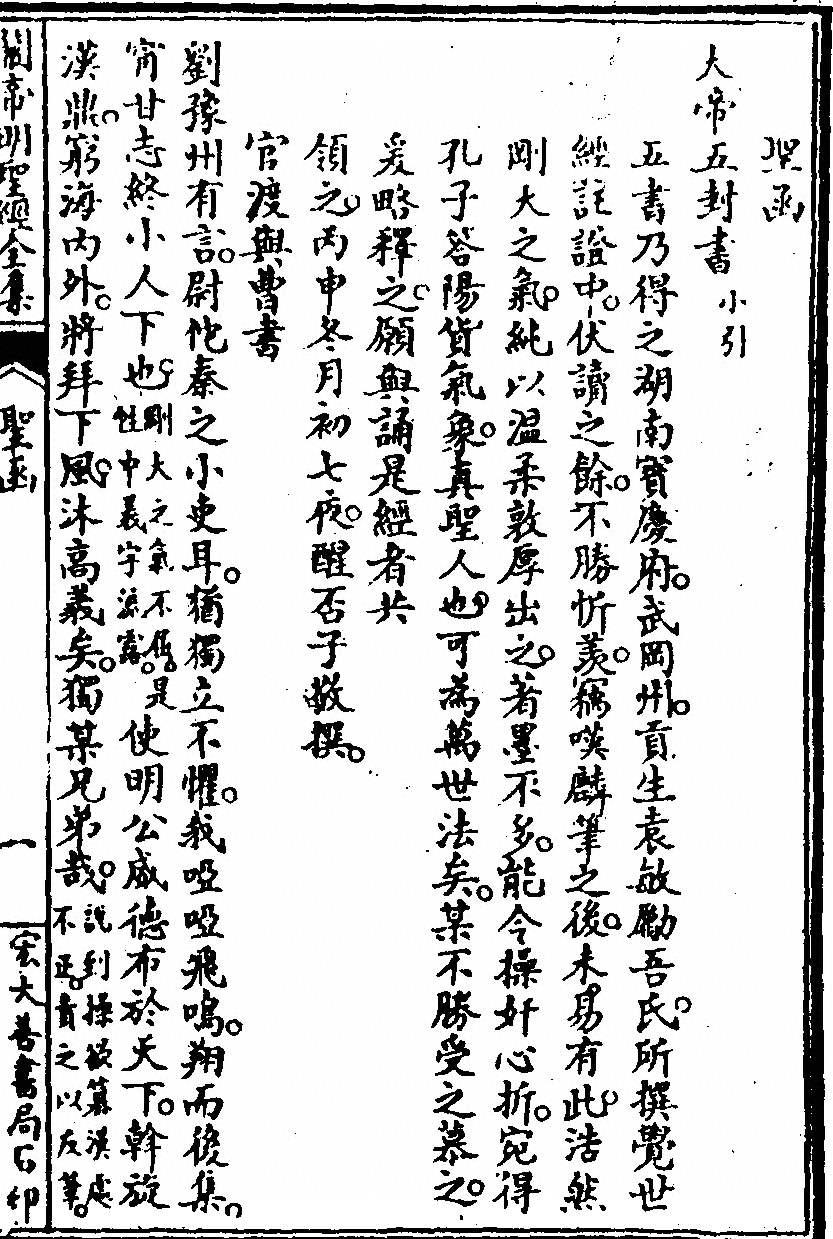 聖函
大帝五封書 小引
五書乃得之湖南寶慶府。武岡州。貢生袁敏勵吾氏。所撰覺世
經註證中。伏讀之餘。不勝忻羨。竊嘆麟筆之後。未易有此。浩然
剛大之氣。純以温柔敦厚出之。著墨不多。能令操奸心折。宛得
孔子答陽貨氣象。真聖人也。可為萬世法矣。某不勝受之慕之。
爰略釋之。願與誦是經者共
領之。丙申冬月初七夜。醒否子敬撰。
官渡與曹書
劉豫州有言。尉佗秦之小吏耳。猶獨立不懼。我啞啞飛鳴。翔而後集。
甯甘志終小人下也。剛大之氣不循是性中義字流露。使明公威德布於天下。斡旋
漢鼎。窮海內外。將拜下風。沐高義矣。獨某兄弟哉。說到操欲篡漢處不正。責之以反筆。
關帝明聖經全集
聖函
一
宏大善書局石印